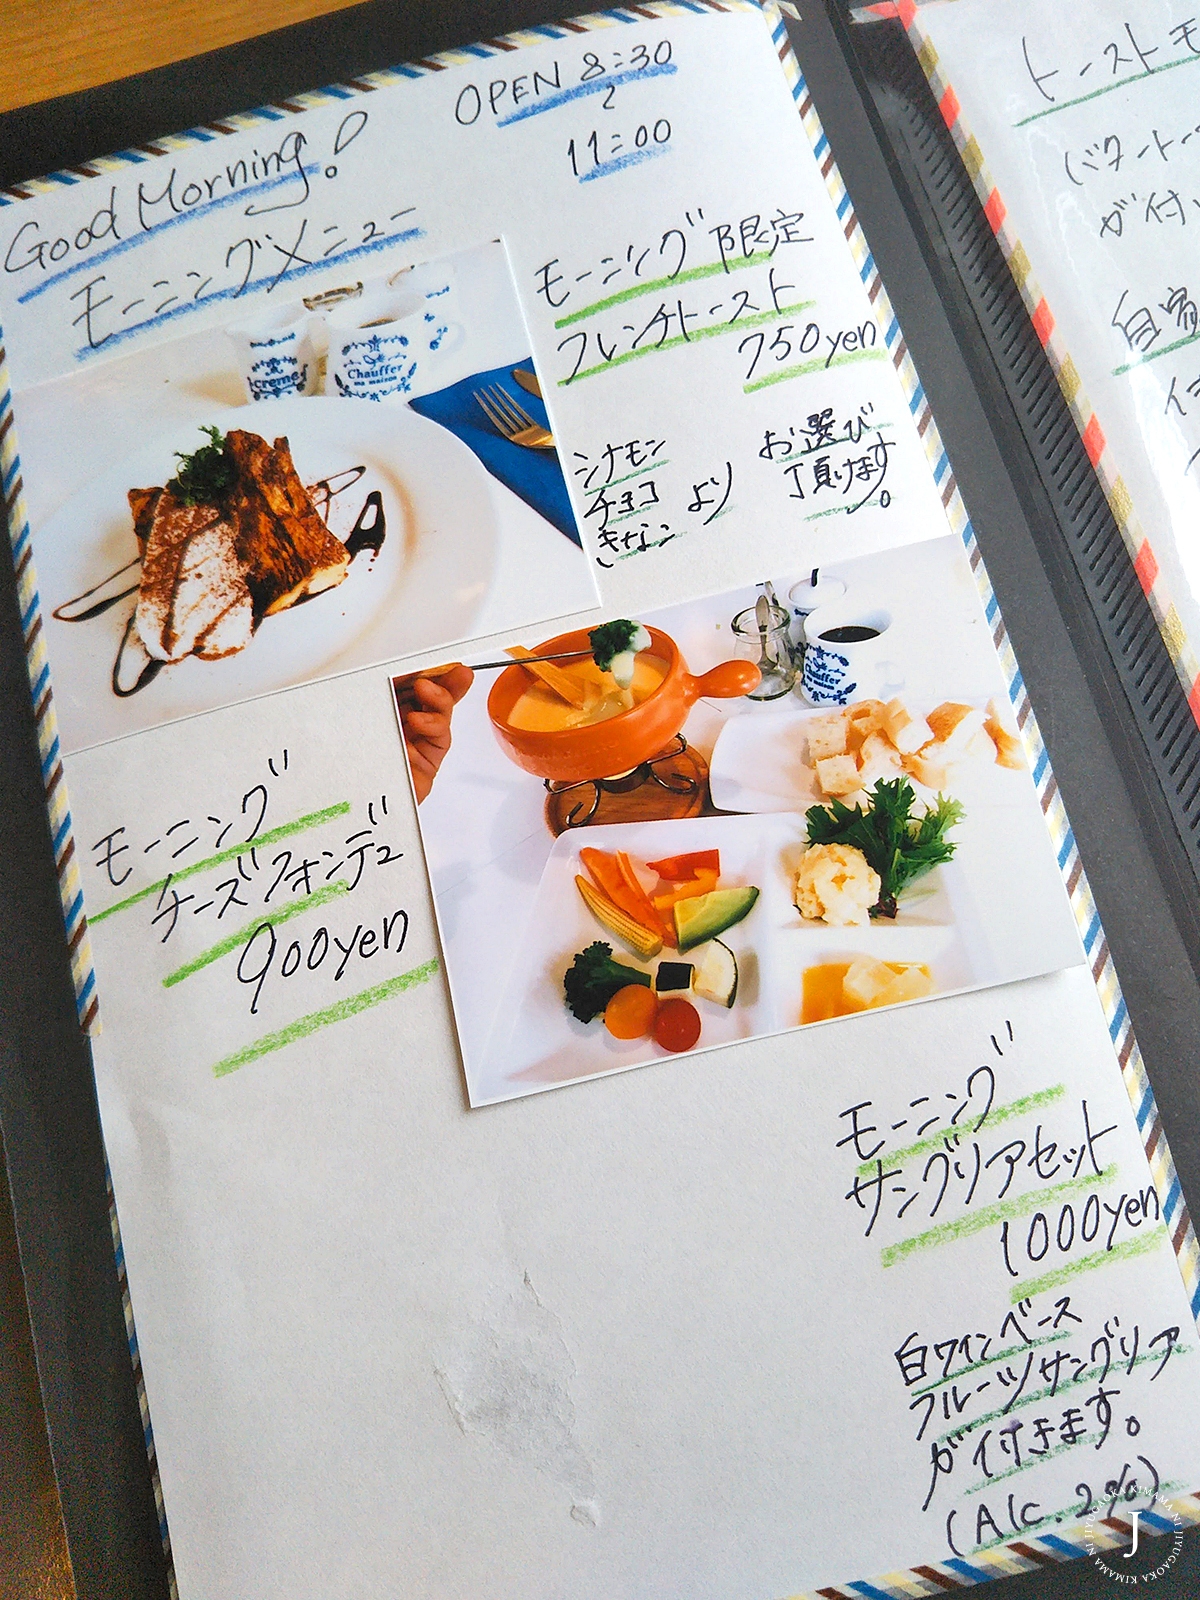 Good Morning!
モーニングメニュー
OPEN 8:30
～
11:00
モーニング限定
フレンチトースト
750yen
シナモン
チョコ
きなこ
より
お選び
頂けます。
creme
Chauffer
ma maison
Chauffer
モーニング
チーズフォンデュ
900yen
モーニング
サングリアセット
1000yen
白ワインベース
フルーツサングリア
が付きます。
(Alc. 2%)
トースト
バタートー
が付
自家
JIYUGAOKA KIMAMA NI JIYUGAOKA KIMAMA NI
J